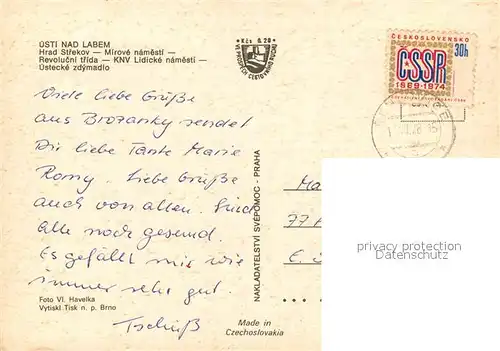 ÚSTÍ NAD LABEM
Hrad Střekov — Mírové náměstí —
Revoluční třída — KNV Lidické náměstí —
Ústecké zdymadlo
Kčs 0.20
ČESKOSLOVENSKO
30h
ČSSR
1969-1974
Viele liebe Grüße
aus Brozanky sendet
Dir liebe Tante Marie
Romy. Liebe Grüße
auch von allen. Sind
alle noch gesund.
Es gefällt mir wie
immer sehr gut.
Tschüß
Foto Vl. Havelka
Vytiskl Tisk n. p. Brno
Made in
Czechoslovakia
NAKLADATELSTVÍ SVÉPOMOC - PRAHA
Ma
77
privacy protection
oldthing.de